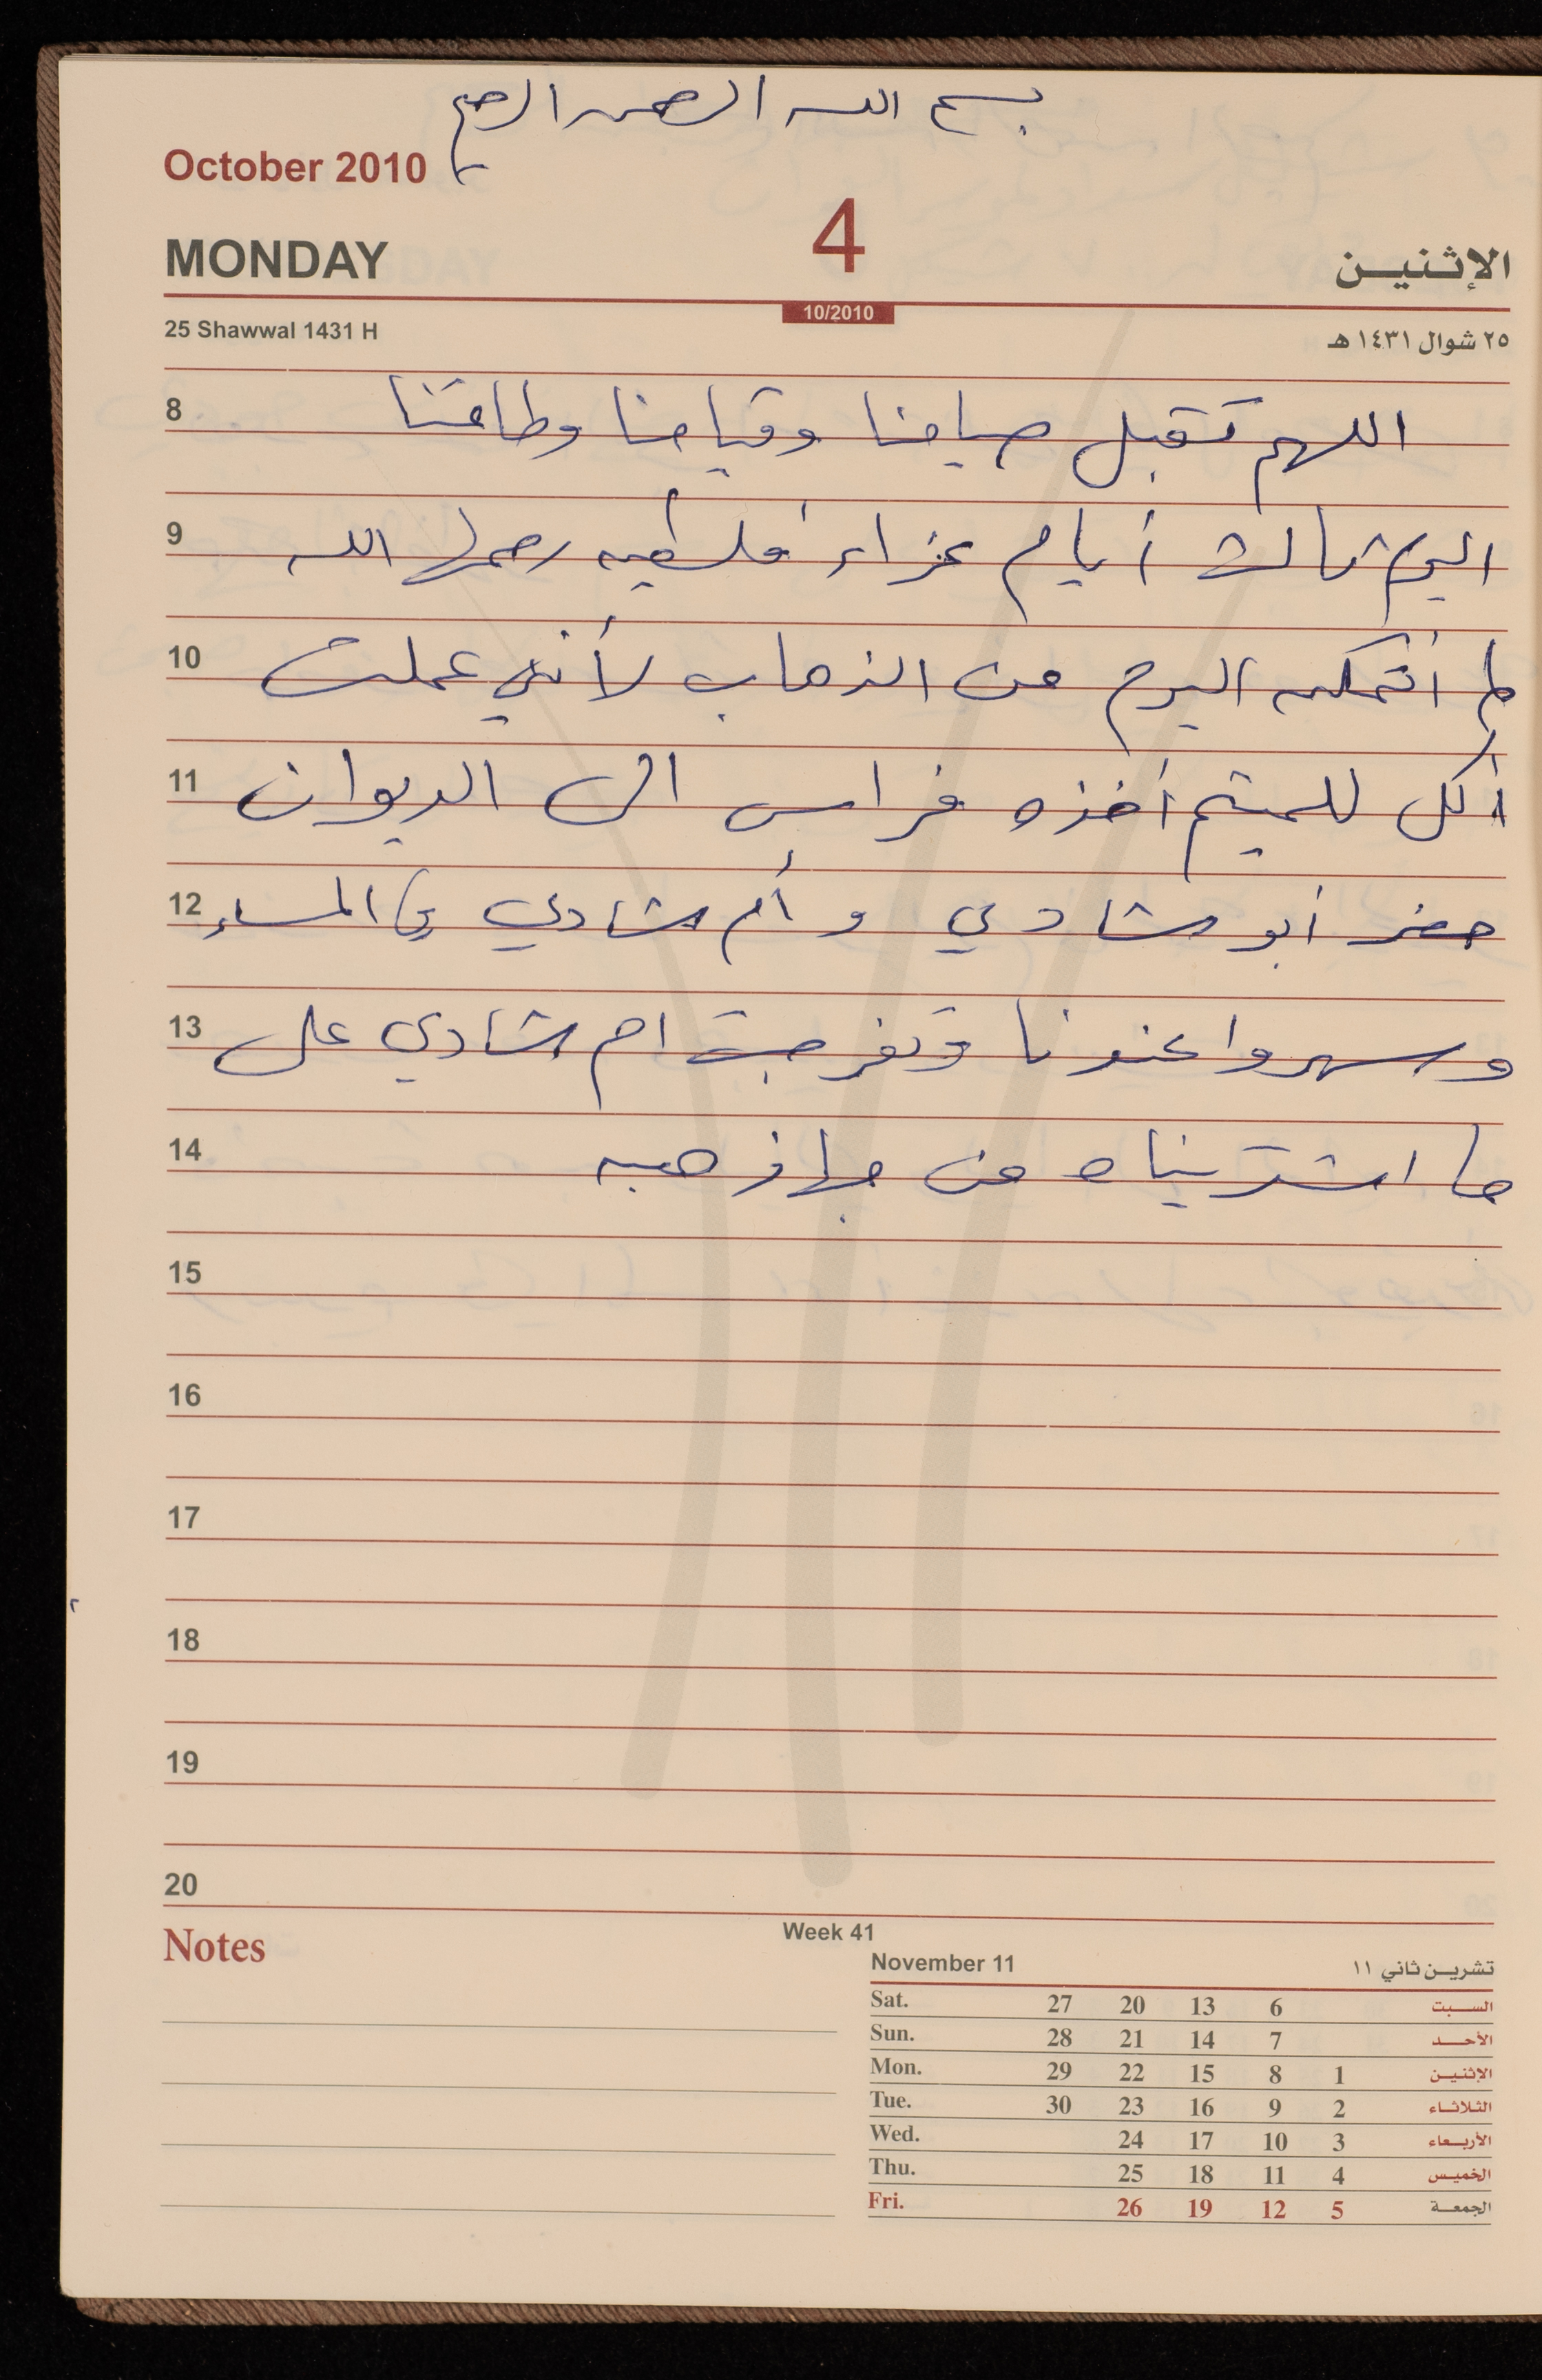 بسم الله الرحمن الرحيم
October 2010
MONDAY 4 الإثنين
10/2010
25 Shawwal 1431 H ٢٥ شوال ١٤٣١ هـ
8 اللهم تقبل صيامنا وقيامنا وطاعتنا
9 اليوم ثالث أيام عزاء فلسطين رحمها الله
10 لم أتمكن اليوم من الذهاب لأني عملت
11 أكل للميتم أخذه فراس الى الديوان
12 حضر أبو شادي و أم شادي في المساء
13 وسهروا عندنا وتفرجت ام شادي على
14 ما اشتريناه من جهاز هبه
15
16
17
18
19
20
Notes
Week 41
November 11 تشرين ثاني ١١
Sat. 27 20 13 6 السبت
Sun. 28 21 14 7 الأحد
Mon. 29 22 15 8 1 الإثنين
Tue. 30 23 16 9 2 الثلاثاء
Wed. 24 17 10 3 الأربعاء
Thu. 25 18 11 4 الخميس
Fri. 26 19 12 5 الجمعة